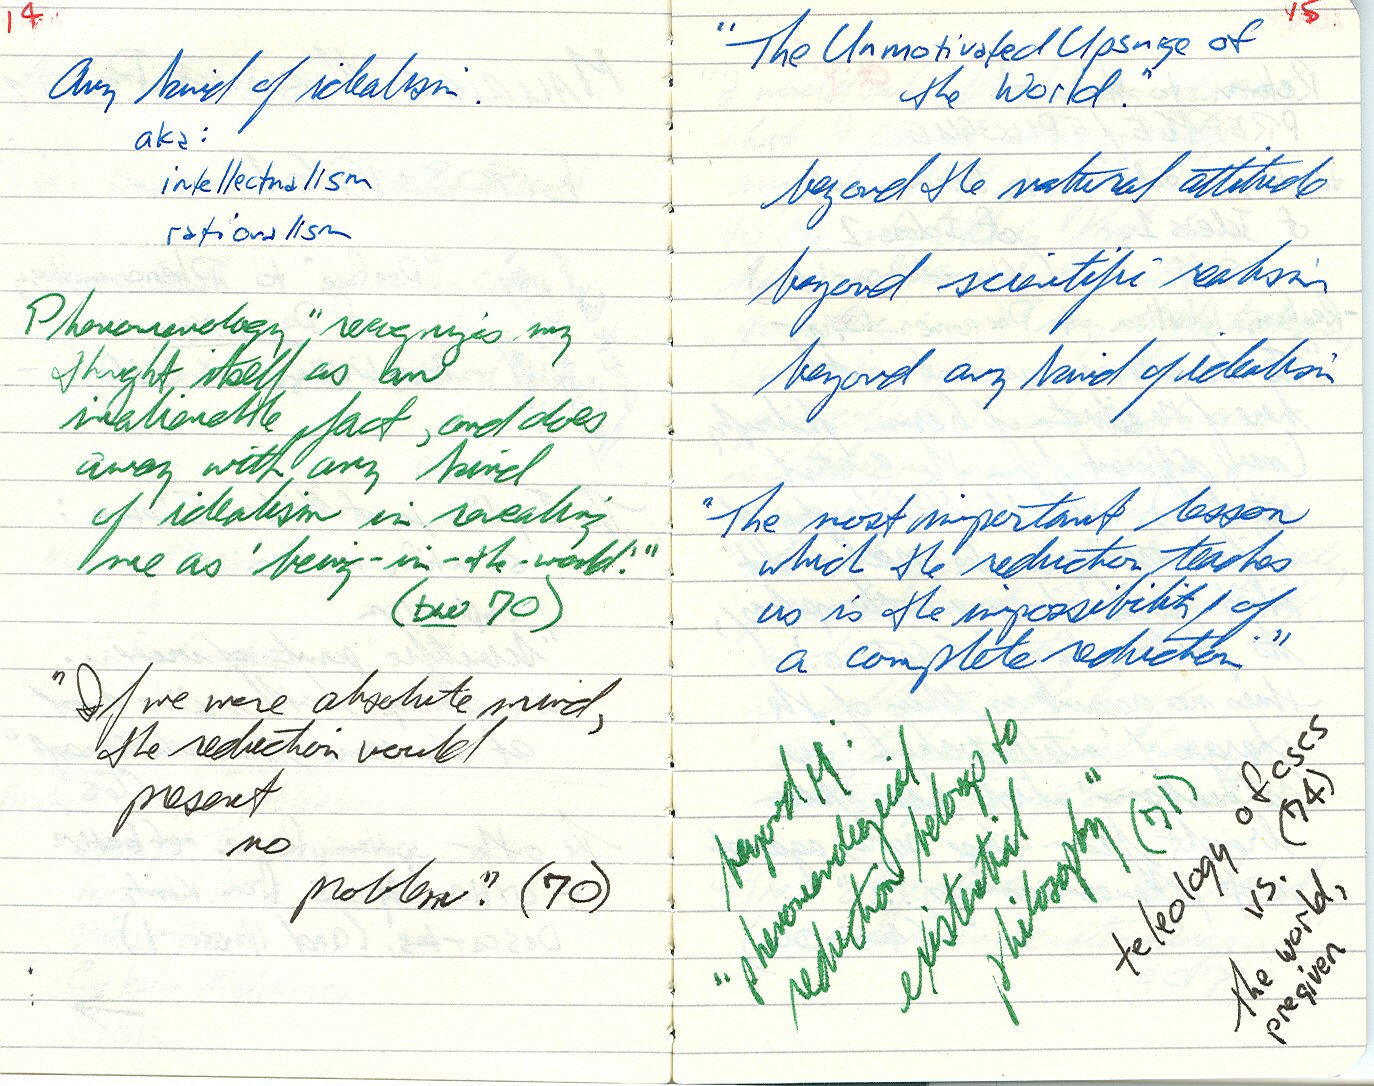 14
Any kind of idealism.
aka:
intellectualism
rationalism
Phenomenology "recognizes my
thought itself as an
inalienable fact, and does
away with any kind
of idealism in revealing
me as 'being-in-the-world'."
(70)
"If we were absolute mind,
the reduction would
present
no
problem." (70)
15
"The Unmotivated Upsurge of
the World."
beyond the natural attitude
beyond scientific realism
beyond any kind of idealism
"The most important lesson
which the reduction teaches
us is the impossibility of
a complete reduction"
beyond
"phenomenological
reduction belongs to
existential
philosophy" (71)
teleology of cscs
(74)
vs.
the world,
pregiven